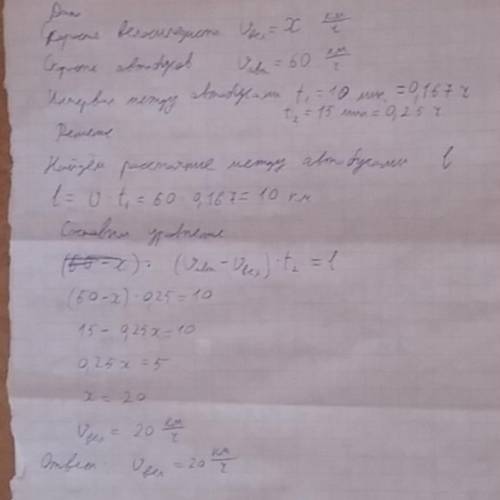 Дано
Скорость велосипедиста Vвел = x км/ч
Скорость автобусов Vавт = 60 км/ч
Интервал между автобусами t₁ = 10 мин. = 0,167 ч
t₂ = 15 мин = 0,25 ч
Решение
Найдём расстояние между автобусами l
l = v · t₁ = 60 · 0,167 = 10 км
Составим уравнение
(60 - x) · (Vавт - Vвел) · t₂ = l
(60 - x) · 0,25 = 10
15 - 0,25x = 10
0,25x = 5
x = 20
Vвел = 20 км/ч
Ответ: Vвел = 20 км/ч